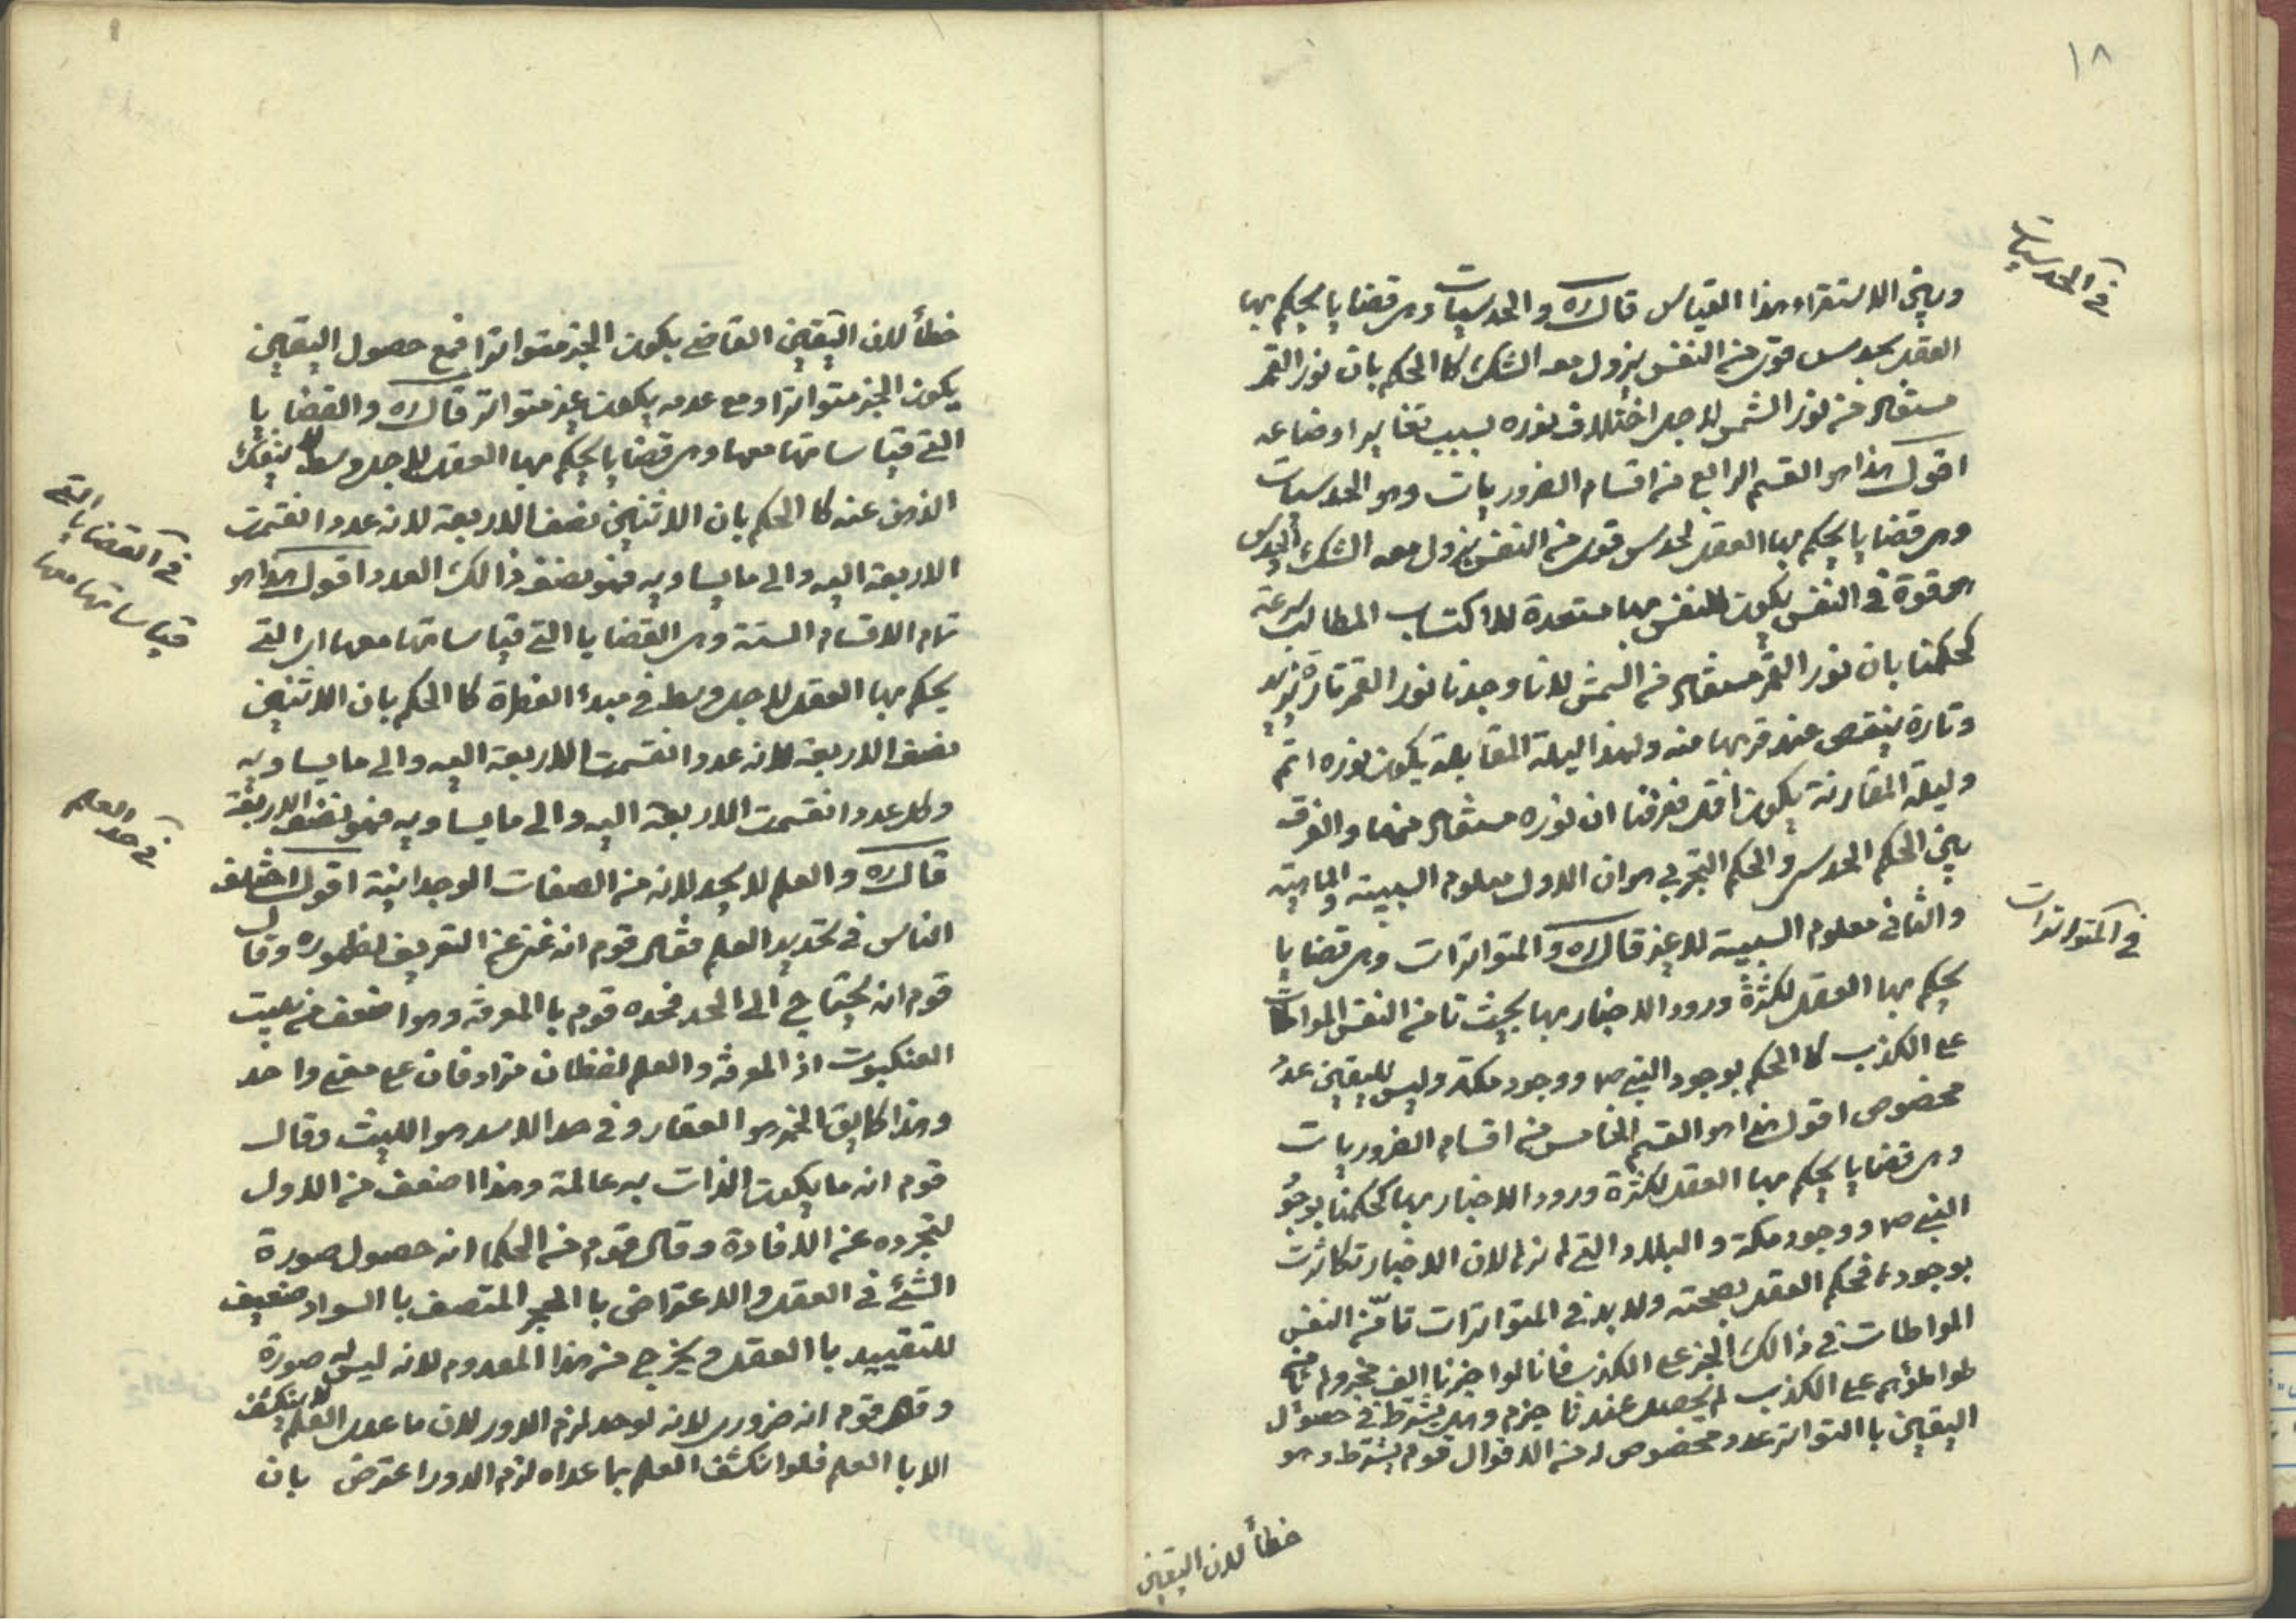 ١٨
في الحدسيات
وبين الاستقراء هذا القياس قال ره والحدسيات وهي قضايا يحكم بها
العقل بحدس قوي من النفس يزول معه الشك كا الحكم بان نور القمر
مستفاد من نور الشمس لاجل اختلاف نوره بسبب تغاير اوضاعه
اقول هذا هو القسم الرابع من اقسام الضروريات وهو الحدسيات
وهي قضايا يحكم بها العقل لحدس قوي من النفس يزول معه الشك الحدس
هو قوة في النفس يكون للنفس بها مستعدة للاكتساب المطالب بسرعة
كحكمنا بان نور القمر مستفاد من الشمس لانا وجدنا نور القمر تارة يزيد
وتارة ينقص عند قربها منه ولهذا ليلة المقابلة يكون نوره اتم
وليلة المقارنة يكون اقل فعرفنا ان نوره مستفاد منها والفرق
بين الحكم الحدسي والحكم التجربي هو ان الاول معلوم السببية والماهية
في المتواترات
والثاني معلوم السببية لا غير قال ره والمتواترات وهي قضايا
يحكم بها العقل لكثرة ورود الاخبار بها بحيث تامن النفس المواطات
على الكذب كا الحكم بوجود النبي ص ووجود مكة وليس لليقين عدد
مخصوص اقول هذا هو القسم الخامس من اقسام الضروريات
وهي قضايا يحكم بها العقل لكثرة ورود الاخبار بها كحكمنا بوجود
النبي ص ووجود مكة والبلاد التي لم نرها لان الاخبار تكاثرت
بوجودها فحكم العقل بصحته ولا بد في المتواترات تامن النفس
المواطات في ذالك الخبر على الكذب فانا لو اخبرنا الف مخبر ولم نامن
طواطؤهم على الكذب لم يحصل عندنا جزم وهل يشترط في حصول
اليقين با التواتر عدد مخصوص له من الاقوال قوم يشترط وهو
خطأ لان اليقين
خطأ لان اليقين القاضي بكون الخبر متواترا فمع حصول اليقين
يكون الخبر متواترا ومع عدمه يكون غير متواتر قال ره والقضايا
التي قياساتها معها وهي قضايا يحكم بها العقل لاجل وسط لا ينفك
في القضايا التي
قياساتها معها
الذهن عنه كا الحكم بان الاثنين نصف الاربعة لانه عدد انقسمت
الاربعة اليه والى ما يساويه فهو نصف ذالك العدد اقول هذا هو
تمام الاقسام الستة وهي القضايا التي قياساتها معها اي التي
يحكم بها العقل لاجل وسط في مبدء الفطرة كا الحكم بان الاثنين
نصف الاربعة لانه عدد انقسمت الاربعة اليه والى ما يساويه
وكل عدد انقسمت الاربعة اليه والى ما يساويه فهو نصف الاربعة
في حد العلم
قال ره والعلم لا يحد لانه من الصفات الوجدانية اقول اختلف
الناس في تحديد العلم فقال قوم انه غني عن التعريف لظهوره وقال
قوم انه يحتاج الى الحد فحده قوم با المعرفة وهو اضعف من بيت
العنكبوت اذ المعرفة والعلم لفظان مترادفان على معنى واحد
وهذا كا يق الخمر هو العقار وفي حد الاسد هو الليث وقال
قوم انه ما يكون الذات به عالمة وهذا اضعف من الاول
لتجرده عن الافادة وقال قوم من الحكما انه حصول صورة
الشئ في العقل والاعتراض با الحجر المتصف با السواد ضعيف
للتقييد با العقل ويخرج من هذا المعدوم لانه ليس له صورة
وقال قوم انه ضروري لانه لو حد لزم الدور لان ما عدى العلم لا ينكشف
الا با العلم فلو انكشف العلم بما عداه لزم الدور اعترض بان